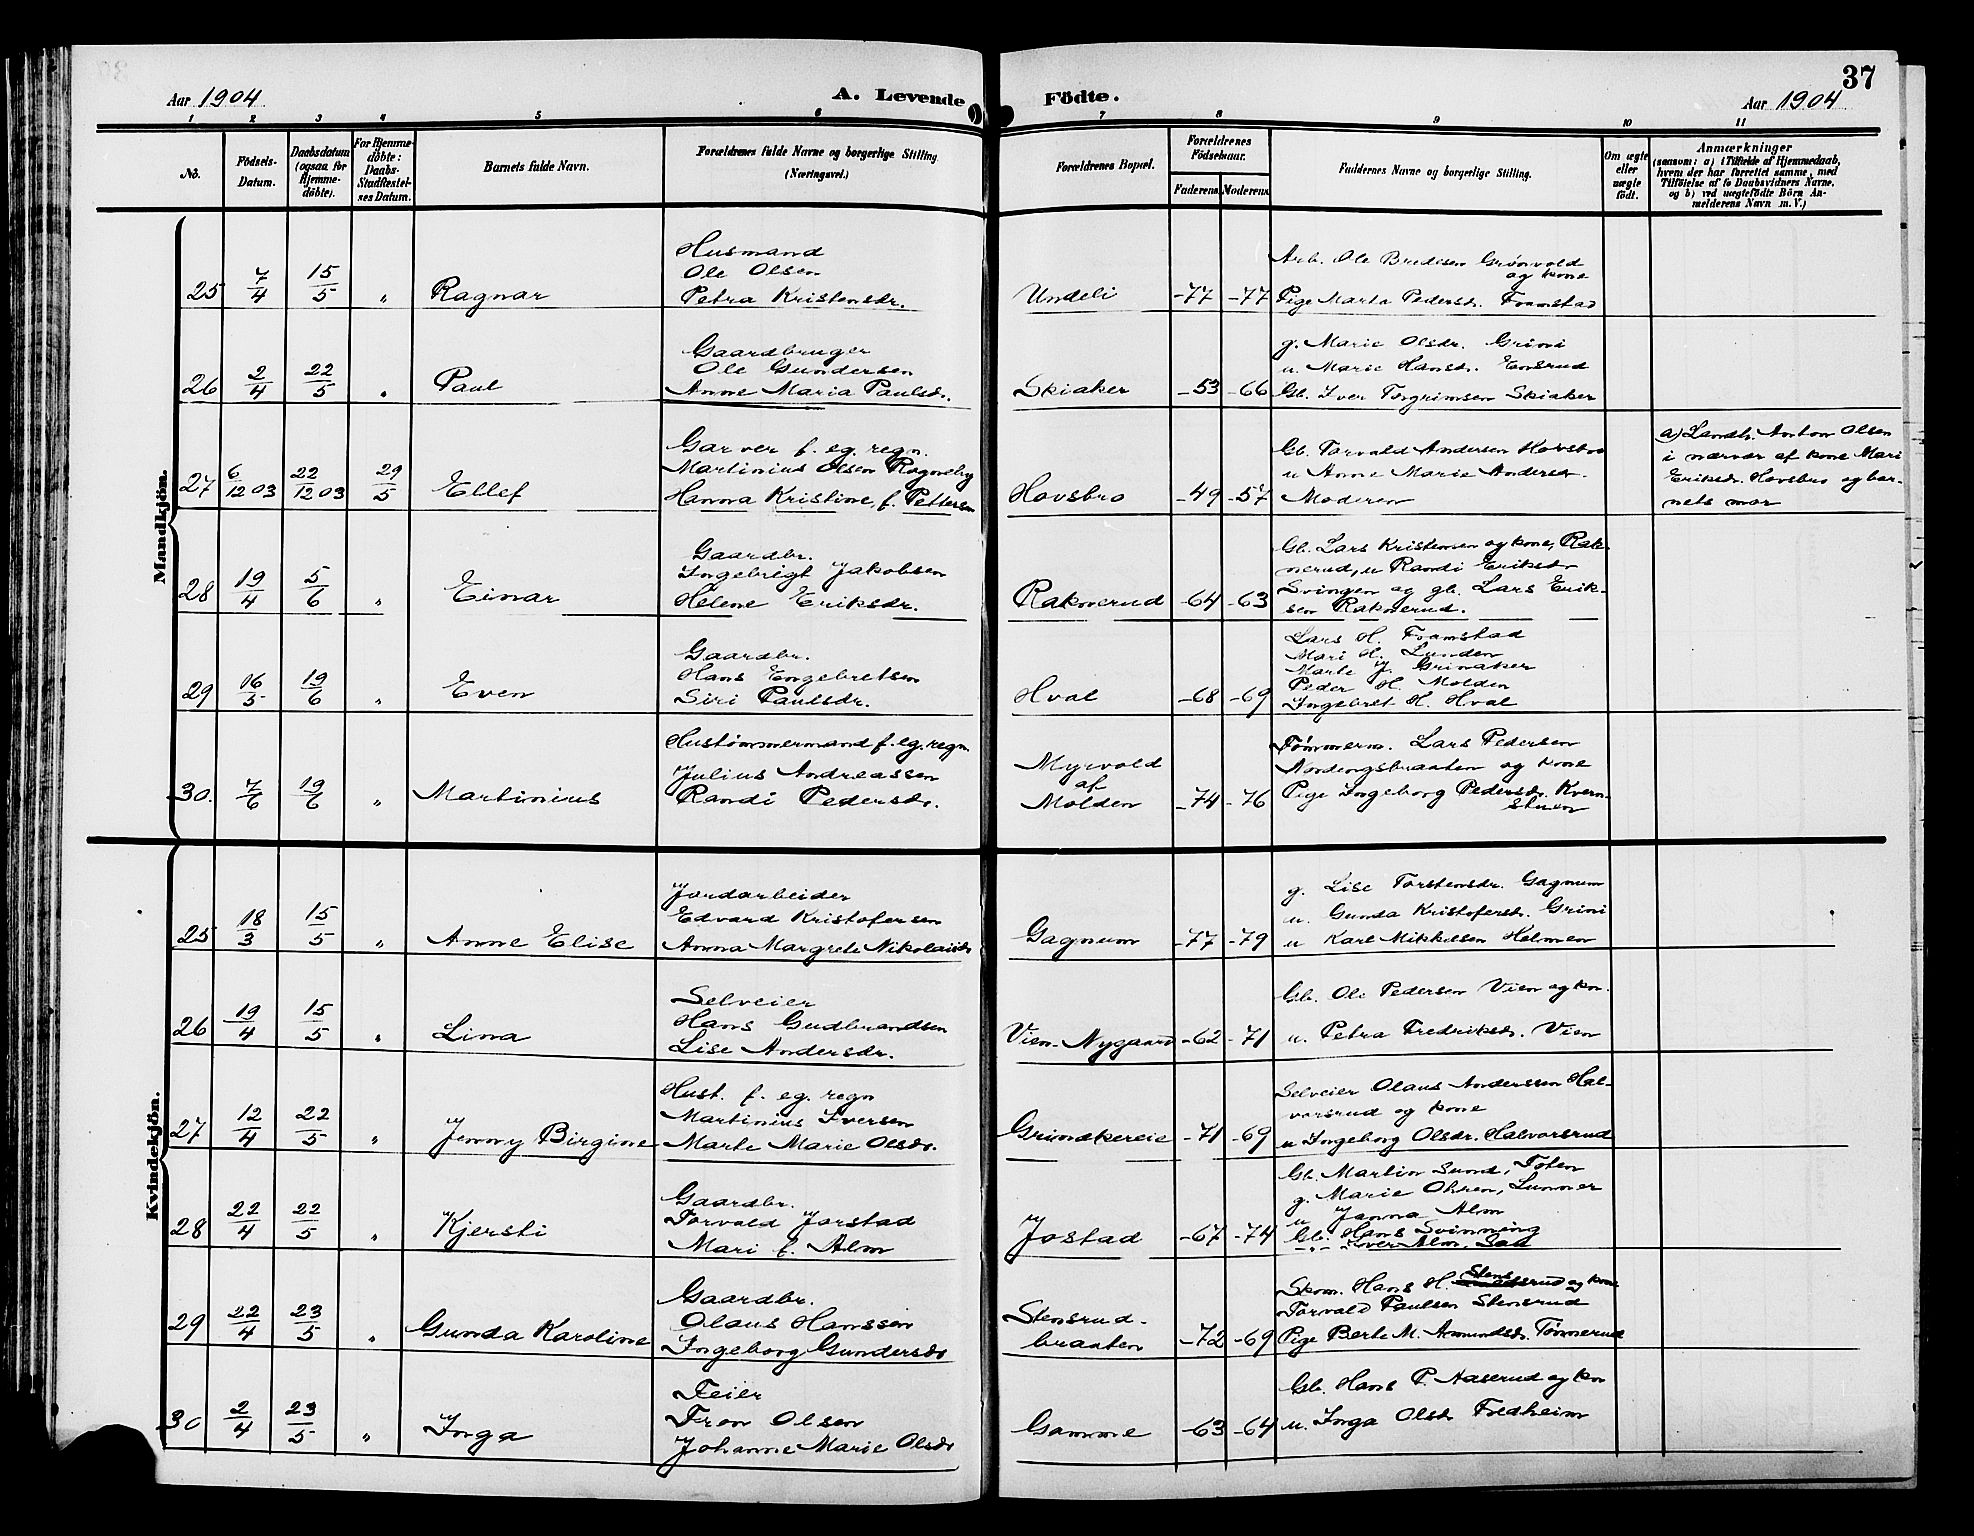 37
Aar 1904
A. Levende
Födte.
Aar 1904
1 2 3 4 5 6 7 8 9 10 11
No.
Födsels-
Datum.
Daabsdatum
(ogsaa for
Hjemme-
döbte).
For Hjemme-
döbte:
Daabs-
Stadfæstel-
ses Datum.
Barnets fulde Navn.
Forældrenes fulde Navne og borgerlige Stilling.
(Næringsvei.)
Forældrenes Bopæl.
Forældrenes
Födselsaar.
Faderens. Moderens.
Faddernes Navne og borgerlige Stilling.
Om ægte
eller
uægte
födt.
Anmærkninger
(saasom: a) i Tilfælde af Hjemmedaab,
hvem der har forrettet samme, med
Tilföielse af to Daabsvidners Navne,
og b) ved uægtefödte Börn An-
melderens Navn m. V.)
Mandkjön.
25 7/4 15/5 „ Ragnar
Husmand
Ole Olsen
Petra Kristensdr.
Undeli -77 -77
Arb. Ole Bredesen Grönvold
og kone
Pige Marta Pedersdr. Framstad
26 2/4 22/5 „ Paul
Gaardbruger
Ole Gundersen
Anne Maria Paulsdr.
Skiaker -53 -66
g. Marie Olsdr. Grini
u. Marie Hansdr. Ensrud
Gb. Iver Torgrimsen Skiaker
27 6/12 03 22/12 03 29/5 Ellef
Garver f. eg. regn.
Martinius Olsen Rogneby
Hanna Kristine, f. Pettersen
Hovsbro -49 -57
Gb. Torvald Andersen Hovsbro
u Anne Marie Andersdr.
Moderen
a) Landh. Anton Olsen
i nærvær af kone Mari
Eriksdr. Hovsbro og bar-
nets mor
28 19/4 5/6 „ Einar
Gaardbr.
Ingebrigt Jakobsen
Helene Eriksdr.
Raknerud -64 -63
Gb. Lars Kristensen og kone, Rak-
nerud, u Randi Eriksdr
Svingen og gb. Lars Erik-
sen Raknerud.
29 16/5 19/6 „ Even
Gaardbr.
Hans Engebretsen
Siri Paulsdr.
Hval -68 -69
Lars H. Framstad
Mari H. Lunden
Marte J. Grinaker
Peder H. Molden
Ingebret H. Hval
30. 7/6 19/6 „ Martinius
Hustømmermand f. eg. regn.
Julius Andreassen
Randi Pedersdr.
Myrvold
af
Molden -74 -76
Tømmerm. Lars Pedersen
Nordengsbraaten og kone
Pige Ingeborg Pedersdr. Kvern-
stuen
Kvindekjön.
25 18/3 15/5 „ Anne Elise
Jordarbeider
Edvard Kristofersen
Anna Margrete Nikolaisdr
Gagnum -77 -79
g. Lise Torstensdr. Gagnum
u. Gunda Kristofersdr. Grini
u Karl Mikkelsen Helmen
26 19/4 15/5 „ Lina
Selveier
Hans Gudbrandsen
Lise Andersdr.
Vien-Nygaard -62 -71
Gb. Ole Pedersen Vien og kon.
u. Petra Fredriksdr. Vien
27 12/4 22/5 „ Jenny Birgine
Hust. f. eg. regn
Martinius Iversen
Marte Marie Olsdr.
Grinakereie -71 -69
Selveier Olaus Anderssen Hal-
vorsrud og kone
u Ingeborg Olsdr. Halvorsrud
28 22/4 22/5 „ Kjersti
Gaardbr.
Torvald Jorstad
Mari f. Alm
Jostad -67 -74
Gb. Martin Sund, Toten
g. Marie Ohren, Lunner
u Janna Alm
Gb. Hans Svinning
-„- Iver Alm, San
29 22/4 23/5 „ Gunda Karoline
Gaardbr.
Olaus Hanssen
Ingeborg Gundersdr
Stensrud-
braaten -72 -69
Skom. Hans H. Stensrud og kone
Torvald Paulsen Stensrud
Pige Berte M. Amundsdr. Tömmerud
30 2/4 23/5 „ Inga
Feier
Fron Olsen
Johanne Marie Olsdr
Gamme -63 -64
Gb. Hans P. Aaserud og kon
u. Inga Olsdr Fredheim